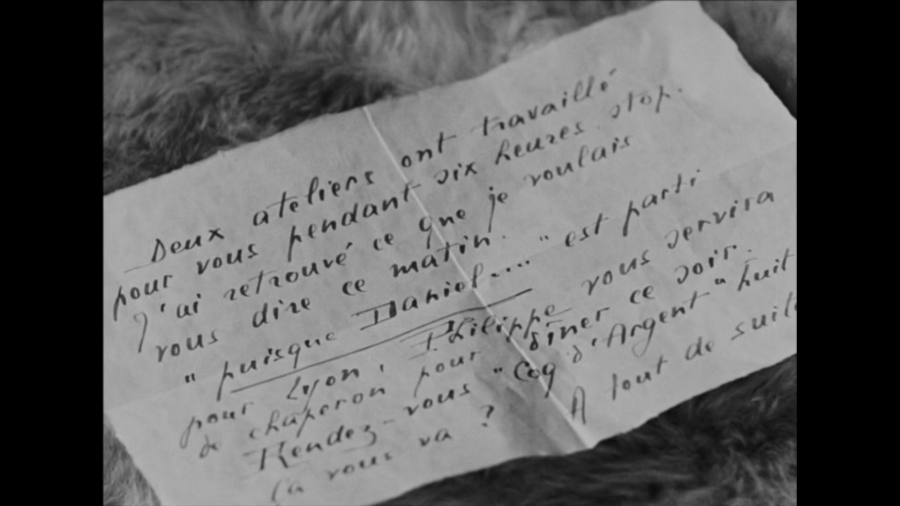 Deux ateliers ont travaillé
pour vous pendant six heures. stop.
J'ai retrouvé ce que je voulais
vous dire ce matin.
"puisque Daniel...." est parti
pour Lyon, Philippe vous servira
de chaperon pour dîner ce soir.
Rendez-vous "Coq d'Argent" huit
Ça vous va ? A tout de suite